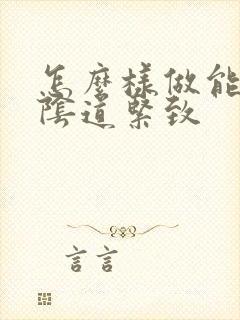 怎麼樣做能
陰道緊致
言言